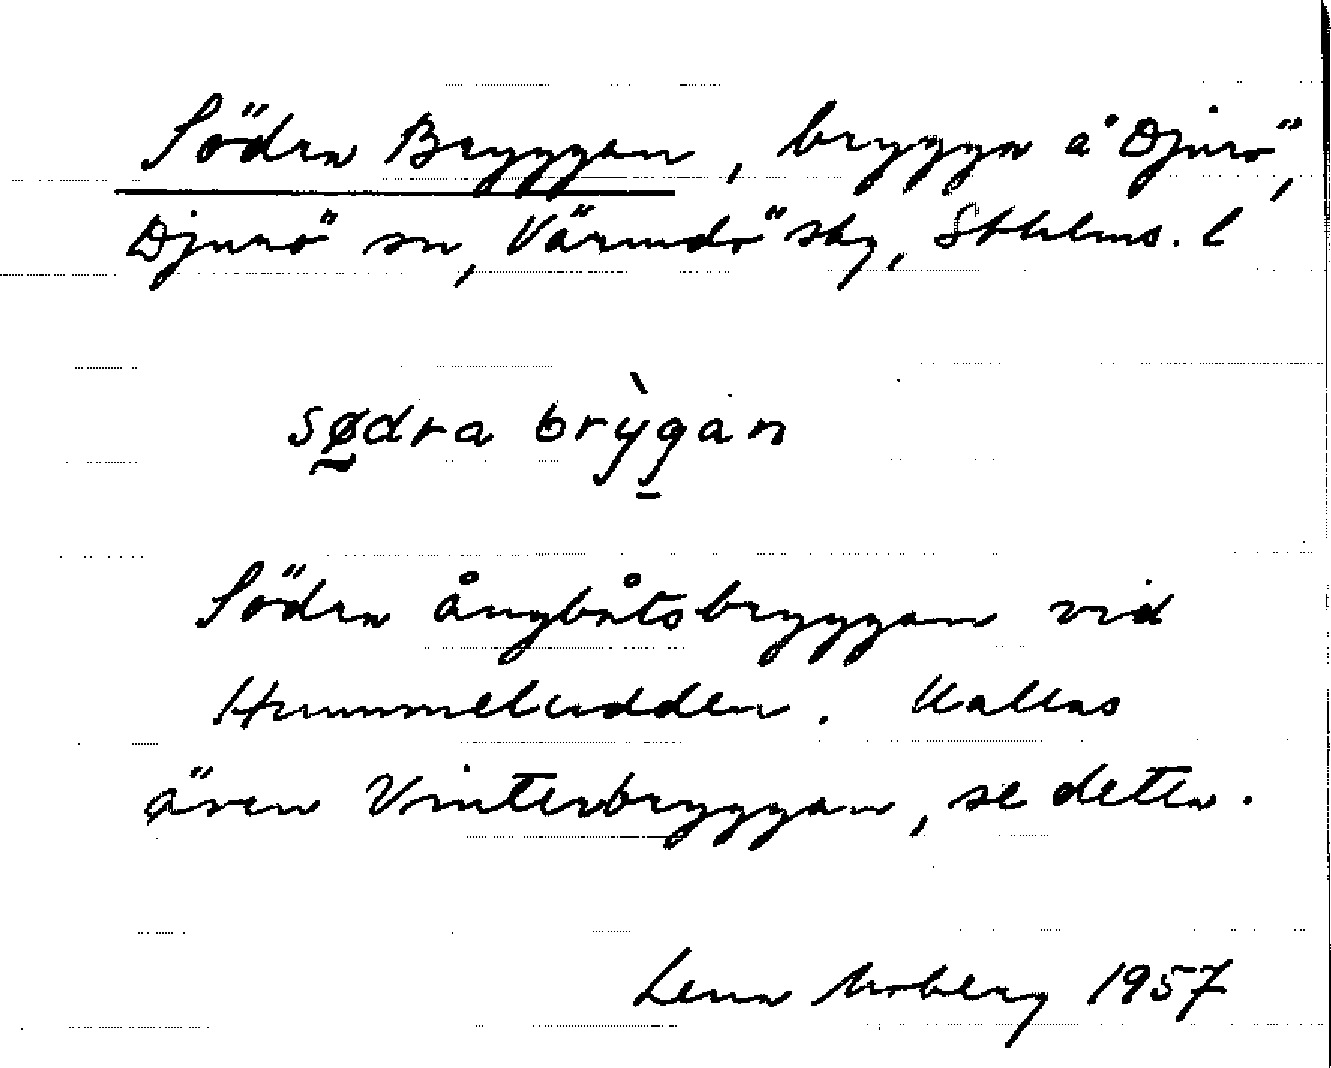 Södra Bryggan, brygga å Djurö,
Djurö sn, Värmdö skg, Sthlms. l
sødra brỳgan
Södra ångbåtsbryggan vid
Hummeludden. Kallas
även Vinterbryggan, se detta.
Lena Moberg 1957